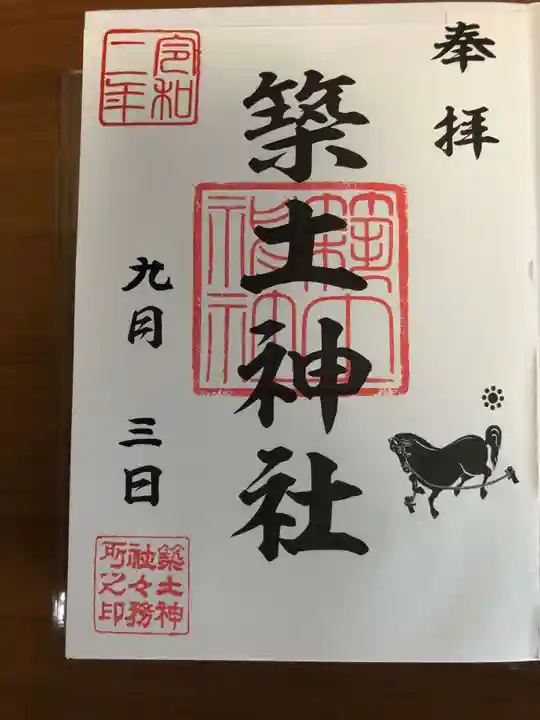 奉拝
築土神社
築土神社
令和二年
九月 三日
築土神社々務所之印